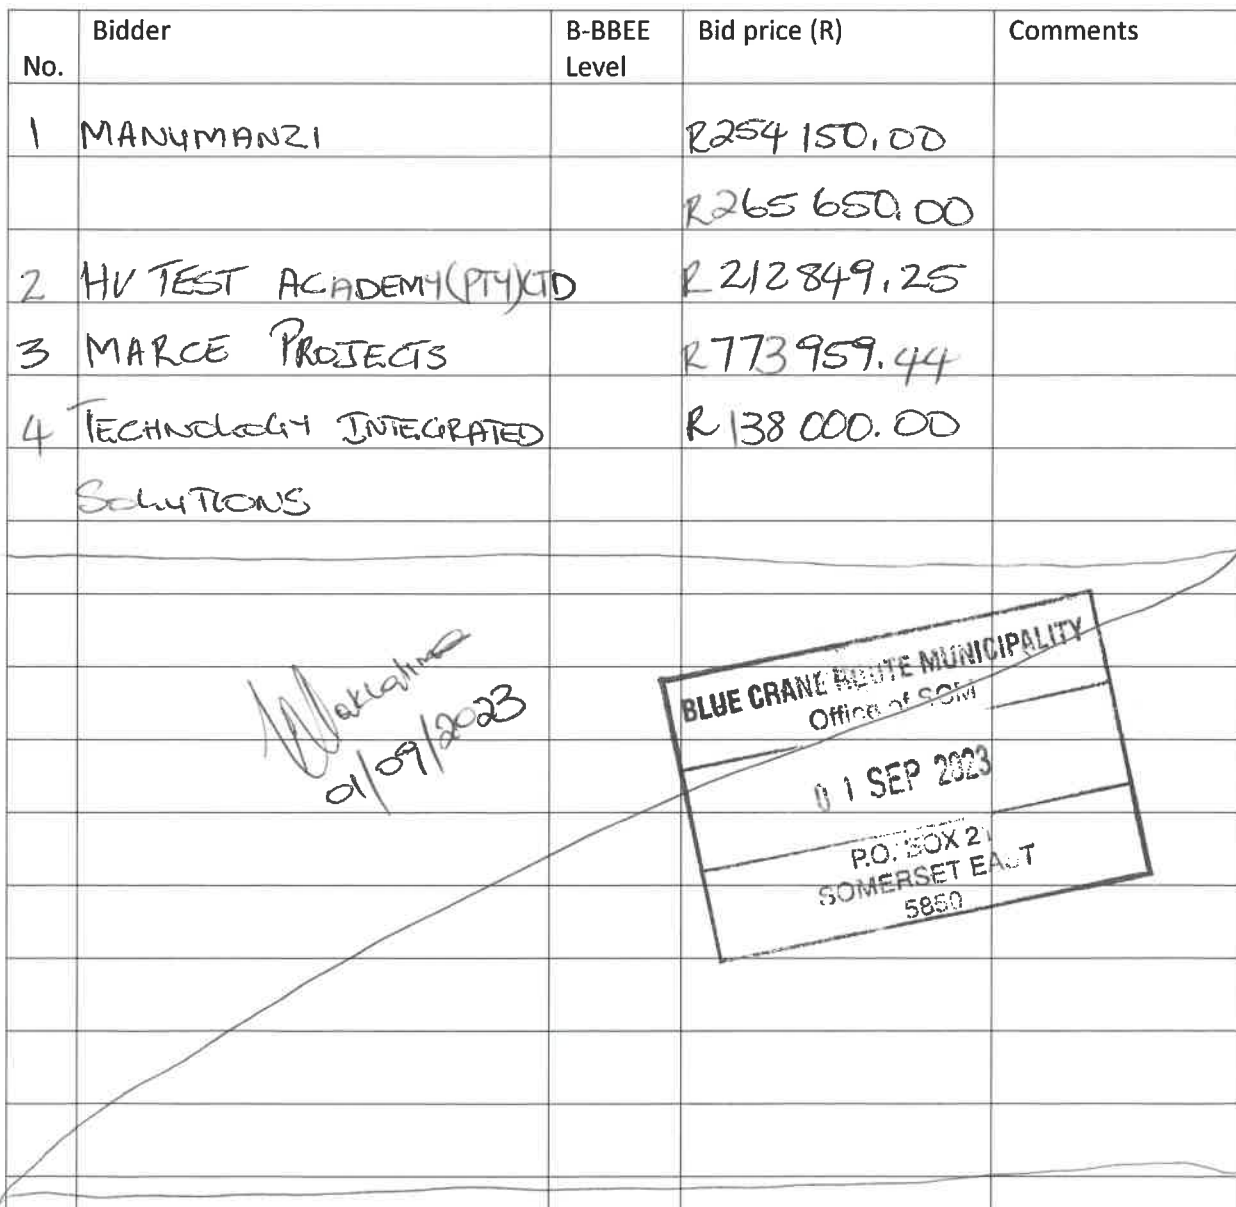 No. Bidder B-BBEE Level Bid price (R) Comments
1 MANYMANZI R254 150.00
R265 650.00
2 HV TEST ACADEMY (PTY) LTD R 212 849.25
3 MARCE PROJECTS R773 959.44
4 TECHNOLOGY INTEGRATED R 138 000.00
SOLUTIONS
01/09/2023
BLUE CRANE ROUTE MUNICIPALITY
Office of SCM
01 SEP 2023
P.O. BOX 21
SOMERSET EAST
5850